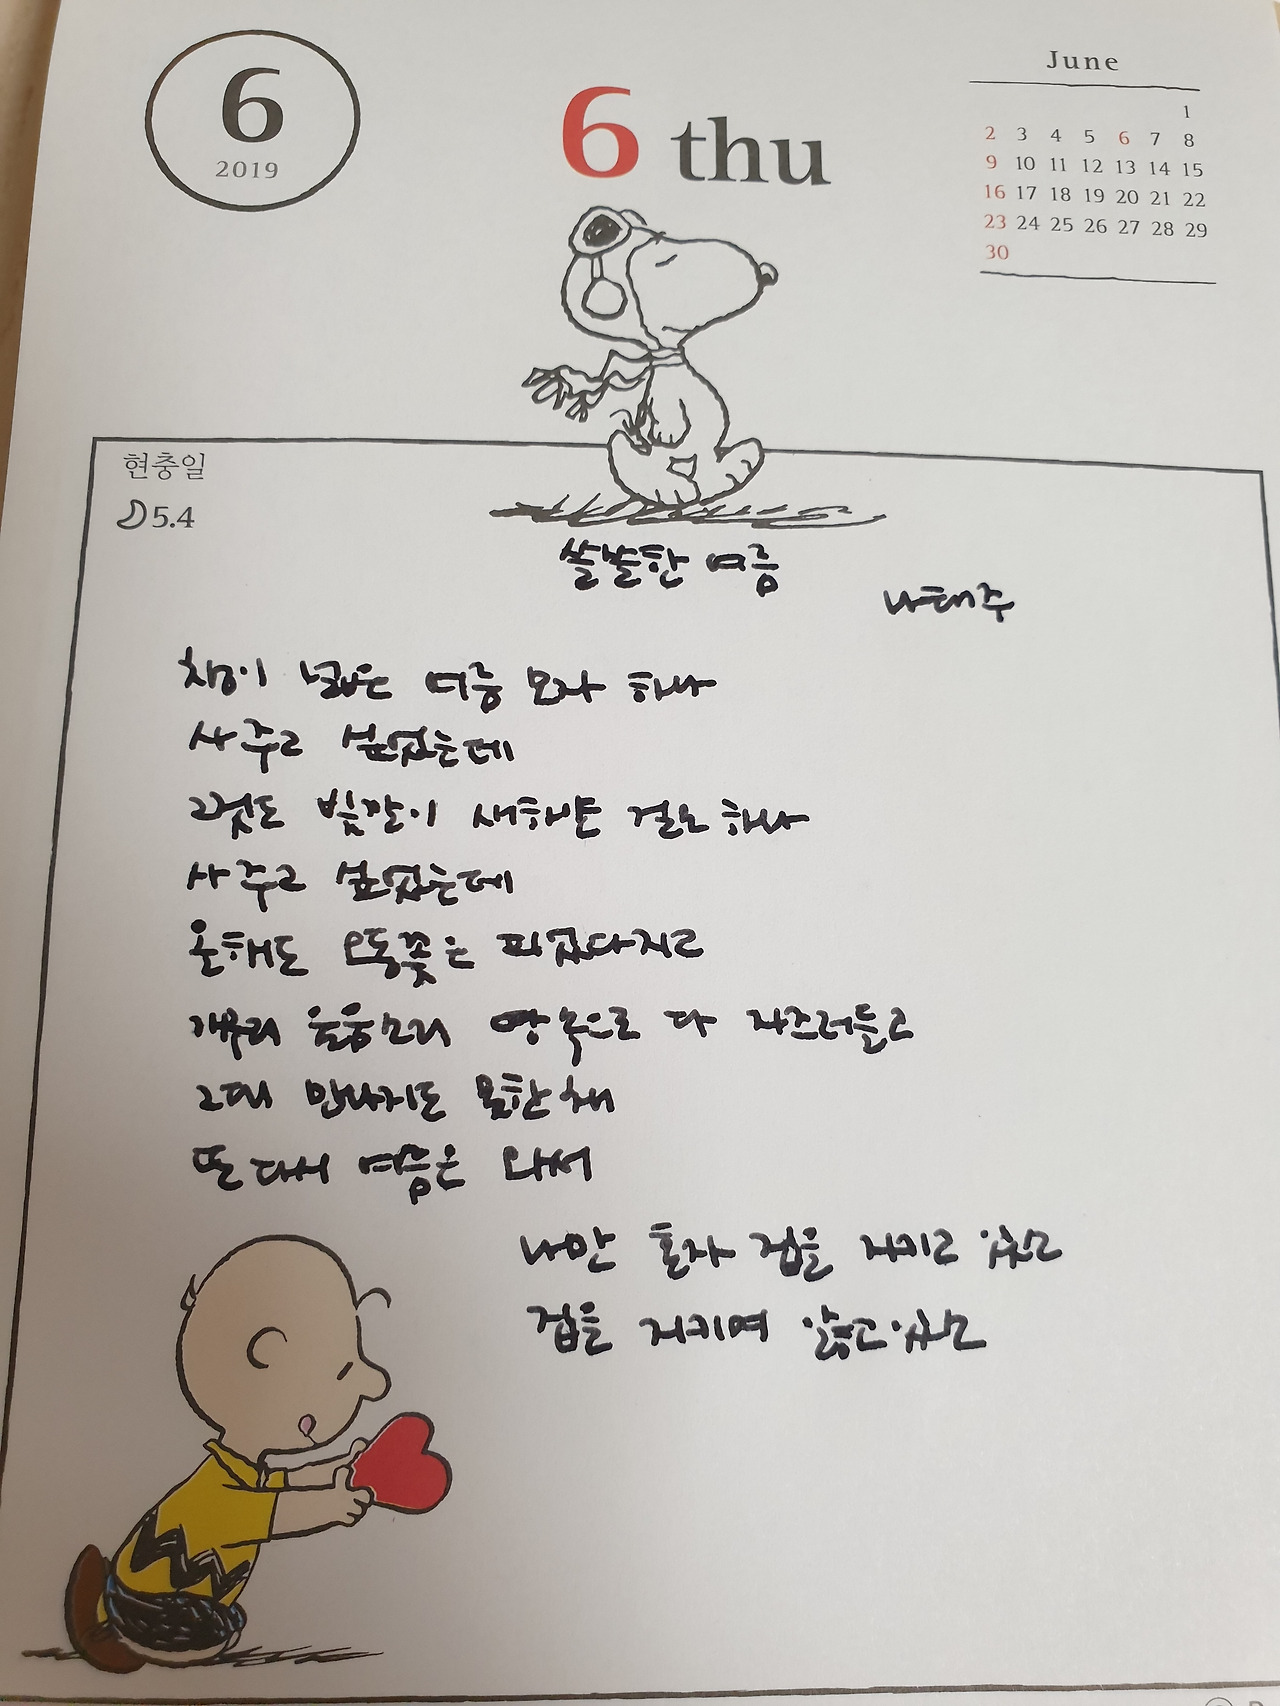 6
2019
6 thu
June
1
2 3 4 5 6 7 8
9 10 11 12 13 14 15
16 17 18 19 20 21 22
23 24 25 26 27 28 29
30
현충일
5.4
쓸쓸한 여름
나태주
챙이 넓은 여름 모자 하나
사 주고 싶었는데
그것도 빛깔이 새하얀 걸로 하나
사 주고 싶었는데
올해도 오동꽃은 피었다지고
개구리 울음소리 땅 속으로 다 자즈러들고
그대 만나지도 못한 채
또 다시 여름은 와서
나만 혼자 집을 지키고 있소
집을 지키며 앓고 있소